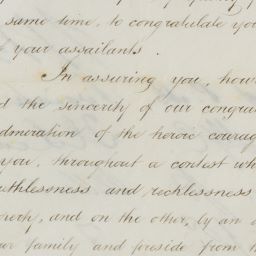 same time, to congratulate you
your assailants.
In assuring you, how
the sincerity of our congra
dmiration of the heroic courag
you, throughout a contest wh
uthlessness and recklessness
and on the other, by an
family and preside from